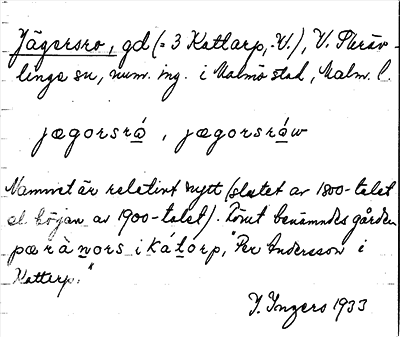 Jägersro, gd (= 3 Kattarp, V.), V. Skräv-
linge sn, num. ing. i Malmö stad, Malm. l.
jægorsrå, jægorsråw
Namnet är relativt nytt (slutet av 1800-talet
el. början av 1900-talet). Förut benämndes gården
pæràṉors i káṯorp, "Per Andersson i
Kattarp."
I. Ingers 1933